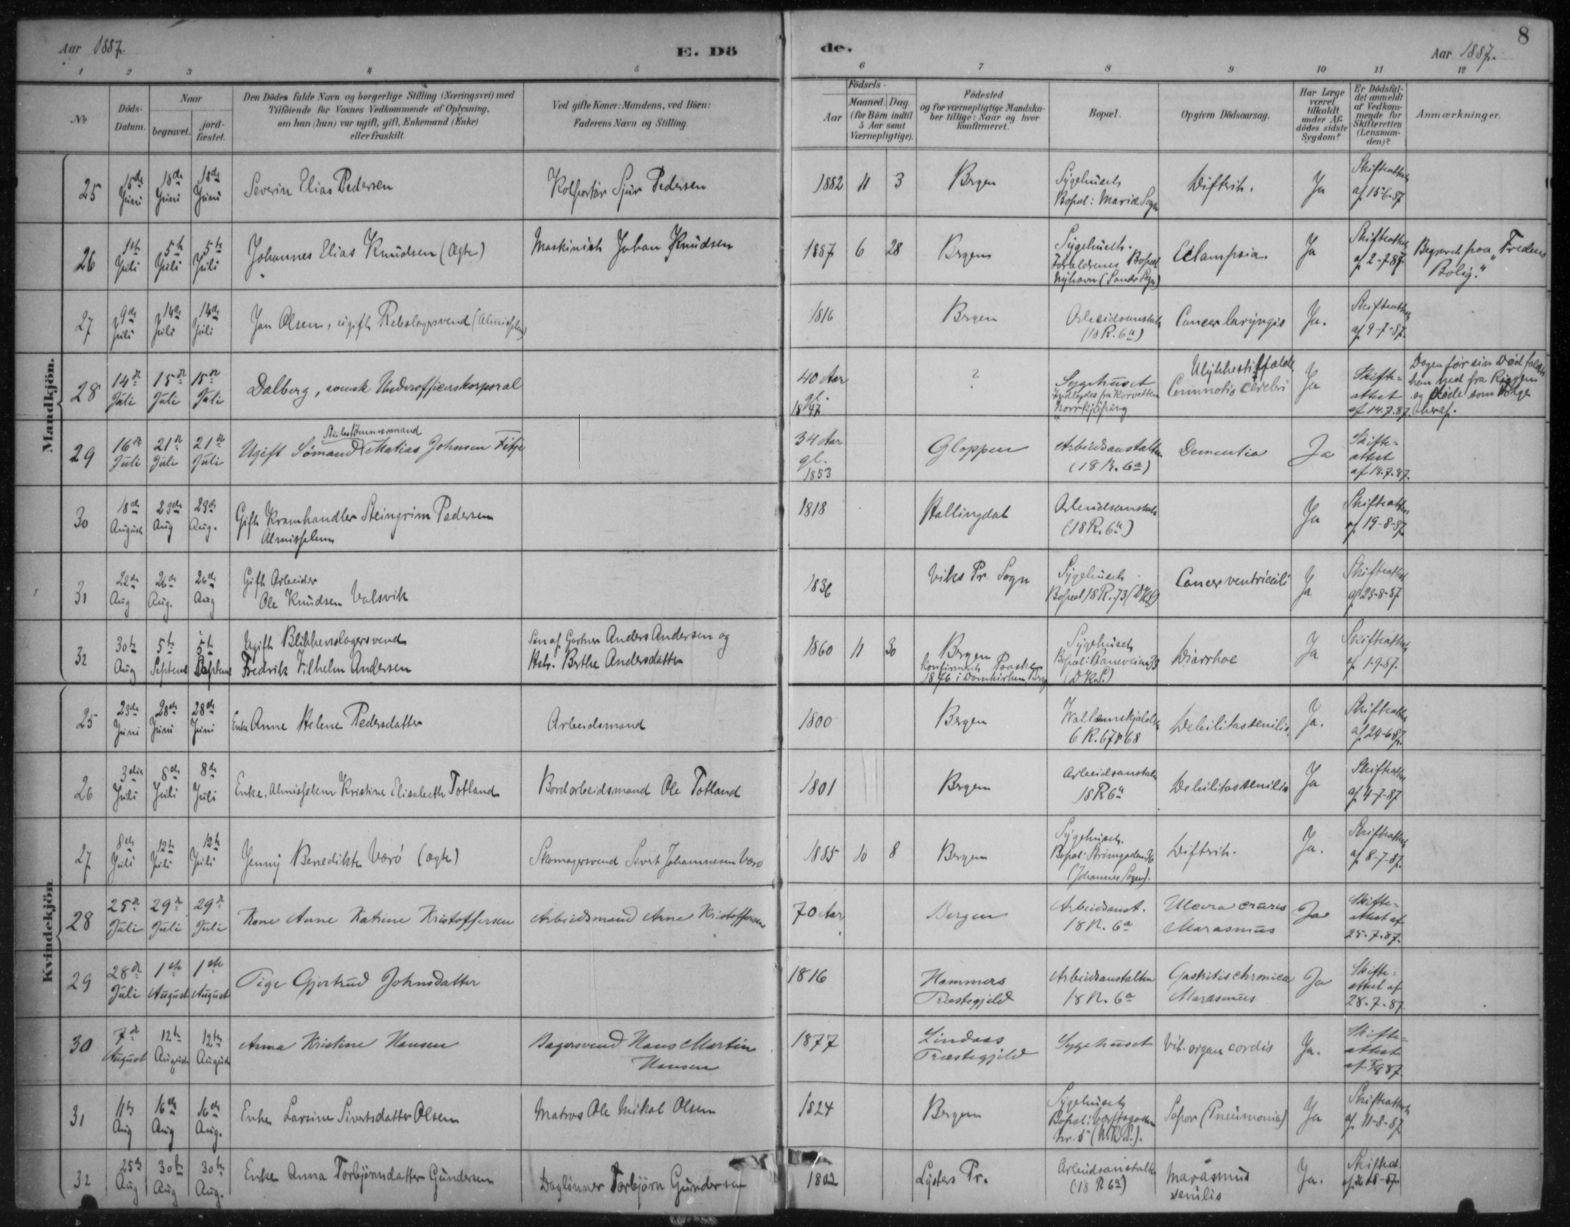 Aar 1887.
E. Dö
de.
Aar 1887.
8
1 2 3 4 5 6 7 8 9 10 11 12
No
Döds-Datum.
Naar
begravet.
jord-fæstet.
Den Dödes fulde Navn og borgerlige Stilling (Næringsvei) med
Tilföiende for Voxnes Vedkommende af Oplysning,
om han (hun) var ugift, gift, Enkemand (Enke)
eller fraskilt.
Ved gifte Koner: Mandens, ved Börn:
Faderens Navn og Stilling
Födsels-
Aar
Maaned. Dag.
(for Börn indtil
5 Aar samt
Værnepligtige).
Födested
og for værnepligtige Mandska-
ber tillige: Naar og hvor
konfirmeret.
Bopæl.
Opgiven Dödsaarsag.
Har Læge
været
tilkaldt
under Af-
dödes sidste
Sygdom?
Er Dödsfal-
det anmeldt
af Vedkom-
mende for
Skifteretten
(Lensman-
den)?
Anmærkninger.
Mandkjön.
25 15de Juni 18de Juni 18de Juni Severin Elias Pedersen Kolportør Sjur Pedersen 1882 11 3 Bergen Sygehuset Bopæl: Mariæ Sogn Difterit. Ja Skifteattest af 15-6-87
26 1ste Juli 5te Juli 5te Juli Johannes Elias Knudsen (Ægte) Maskinist Johan Knudsen 1887 6 28 Bergen Sygehuset. Forældrenes Bopæl Nyhavn (Sandv. Sogn) Eclampsia. Ja Skifteattest af 2-7-87 Begravet fra "Fredens Bolig."
27 9de Juli 14de Juli 14de Juli Jan Olsen, ugift Rebslagersvend (Almisselem) 1816 Bergen Arbeidsanstalten (18 R. 6a) Cancer laryngis Ja. Skifteattest af 9-7-87.
28 14de Juli 15de Juli 15de Juli Dalberg, svensk Underofficerskorporal 40 Aar gl. 1847 ? Sygehuset Korvetten Norrkjöping Ulykkestilfælde Commotio cerebri Ja Skifteattest af 14.7.87. Dagen før sin Død faldt han ned fra Riggen og døde som Følge heraf.
29 16de Juli 21de Juli 21de Juli Ugift Sömand Matias Johnsen Fitje 34 Aar gl. 1853 Gloppen Arbeidsanstalten (18 R. 6a) Dementia Ja Skifteattest af 18.7.87.
30 18de August 23de Aug 23de Aug. Gift Kramhandler Steingrim Pedersen Almisselem 1818 Hallingdal Arbeidsanstalten (18 R. 6a) Ja Skifteattest af 19-8-87.
31 Aug 26de Aug. 26de Aug Gift Arbeider Ole Knudsen Valsvik 1836 Viks Pr. Sogn Sygehuset. Bopæl 18 R. 73 Cancer ventriculi Ja Skifteattest af 23-8-87
32 30te Aug 5te Septemb 5te Septemb Ugift Blikkenslagersvend Fredrik Vilhelm Andersen Søn af Gartner Anders Andersen og Hst. Berthe Andersdatter 1860 11 30 Bergen Konfirmeret Paaske 1876 i Domkirken, Bergen Sygehuset Diarrhoe Ja Skifteattest af 1-9-87.
Kvindekjön
25 23de Juni 28de Juni 28de Juni Enke Anne Helene Pedersdatter Arbeidsmand 1800 Bergen 6 R. 67 & 68 Debilitas senilis Ja. Skifteattest af 24-6-87.
26 3die Juli 8de Juli 8de Juli Enke, Almisselem Kristine Elisabeth Totland Bordarbeidsmand Ole Totland 1801 Bergen Arbeidsanstalten 18 R 6a Debilitas senilis Ja Skifteattest af 4-7-87
27 8de Juli 12te Juli 12te Juli Jenny Benedikte Varø (ægte) Skomagersvend Sivert Johannesen Varø 1885 10 8 Bergen Sygehuset. Bopæl: Strømgaden 36 (Johannes Sogn). Difterit. Ja. Skifteattest af 8-7-87.
28 25de Juli 29de Juli 29de Juli Kone Anne Katrine Kristoffersen Arbeidsmand Arne Kristoffersen 70 Aar Bergen Arbeidsanst. 18 R. 6a Ulcera cruris Marasmus Ja Skifteattest af 25-7-87.
29 28de Juli 1ste August 1ste August Pige Gjertrud Johnsdatter 1816 Hammers Præstegjeld Arbeidsanstalten 18 R. 6a Gastritis chronica Marasmus Ja Skifteattest af 28-7-87.
30 7de August 12te August 12te August Anna Kristine Hansen Bagersvend Hans Martin Hansen 1877 Lindaas Præstegjeld Sygehuset Vit. organ cordis Ja. Skifteattest af 87.
31 11te Aug 16de Aug 16de Aug. Enke Larsine Sivertsdatter Olsen Matros Ole Mikal Olsen 1824 Bergen Sygehuset Nr. 5 Sopor (Pneumonia) Ja Skifteattest af 11-8-87
32 25de Aug 30te Aug 30te Aug. Enke Anna Torbjörnsdatter Gundersen Daglönner Torbjörn Gundersen 1802 Lysters Pr. Arbeidsanstalten (18 R 6a) Marasmus senilis Ja. Skifteat. af 26-8-87.